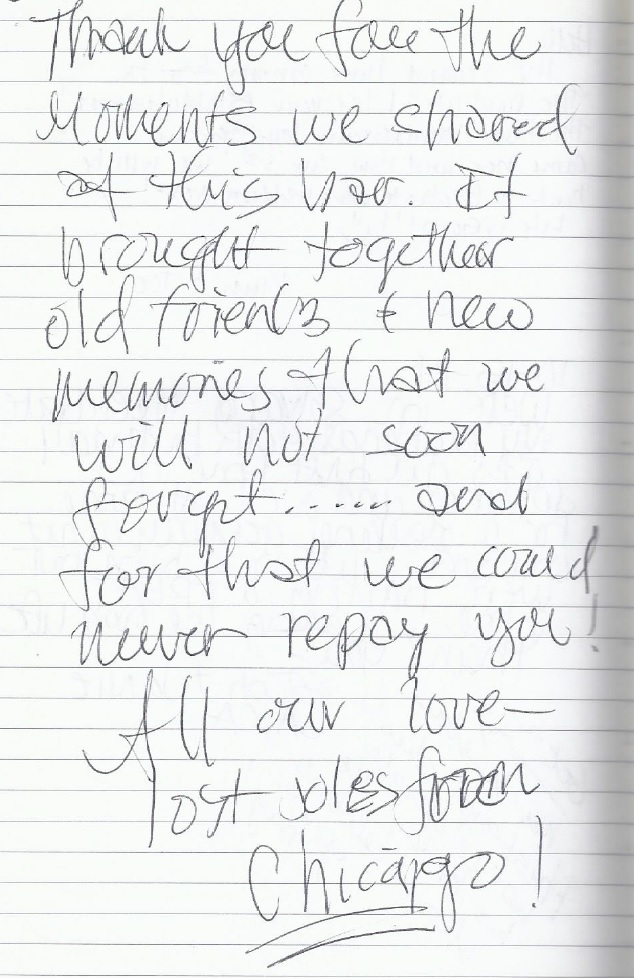 Thank you for the
Moments we shared
at this bar. It
brought together
old friends & new
memories that we
will not soon
forget...... and
for that we could
never repay you!
All our love—
lost soles from
Chicago!